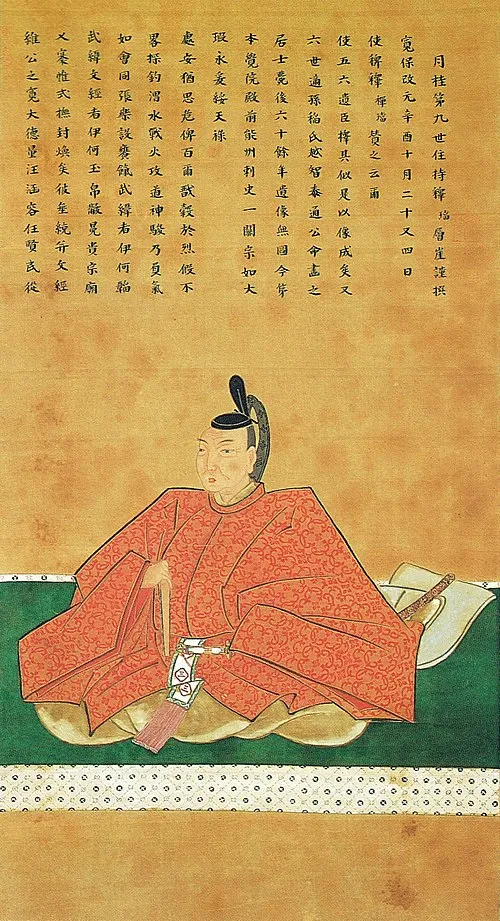 維公之寛大德量汪涵容任賢民從
又寒惟弌撫封煥矣 統 文經
武緯文經者伊何玉帛黻冕貴宗廟
如會同張樂設饗饋武緯者伊何韜
畧採釣渭水戰火攻道神駿乃 氣
處安猶思危俾百爾戩穀於烈假不
瑕永妥綏天祿
本覺院殿前能州刺史一關宗如大
居士薨後六十餘年遺像無圖今
六世適孫稲氏越智泰通公命畫之
使五六遺臣擇其似是以像成矣又
使稗釋瑙贊之云爾
寛保改元辛酉十月二十又四日
月桂第九世住持釋瑙層崖謹撰